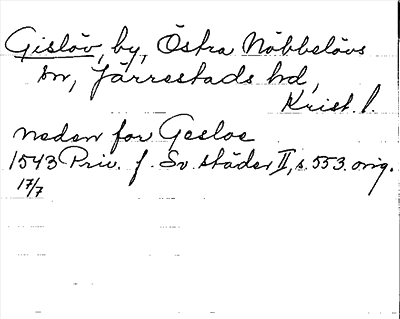 Gislöv, by, Östra Nöbbelövs
sn, Järrestads hd,
Krist. l.
neden for Gesløe
1543 Priv. f. Sv. städer II, s. 553. orig.
17/7